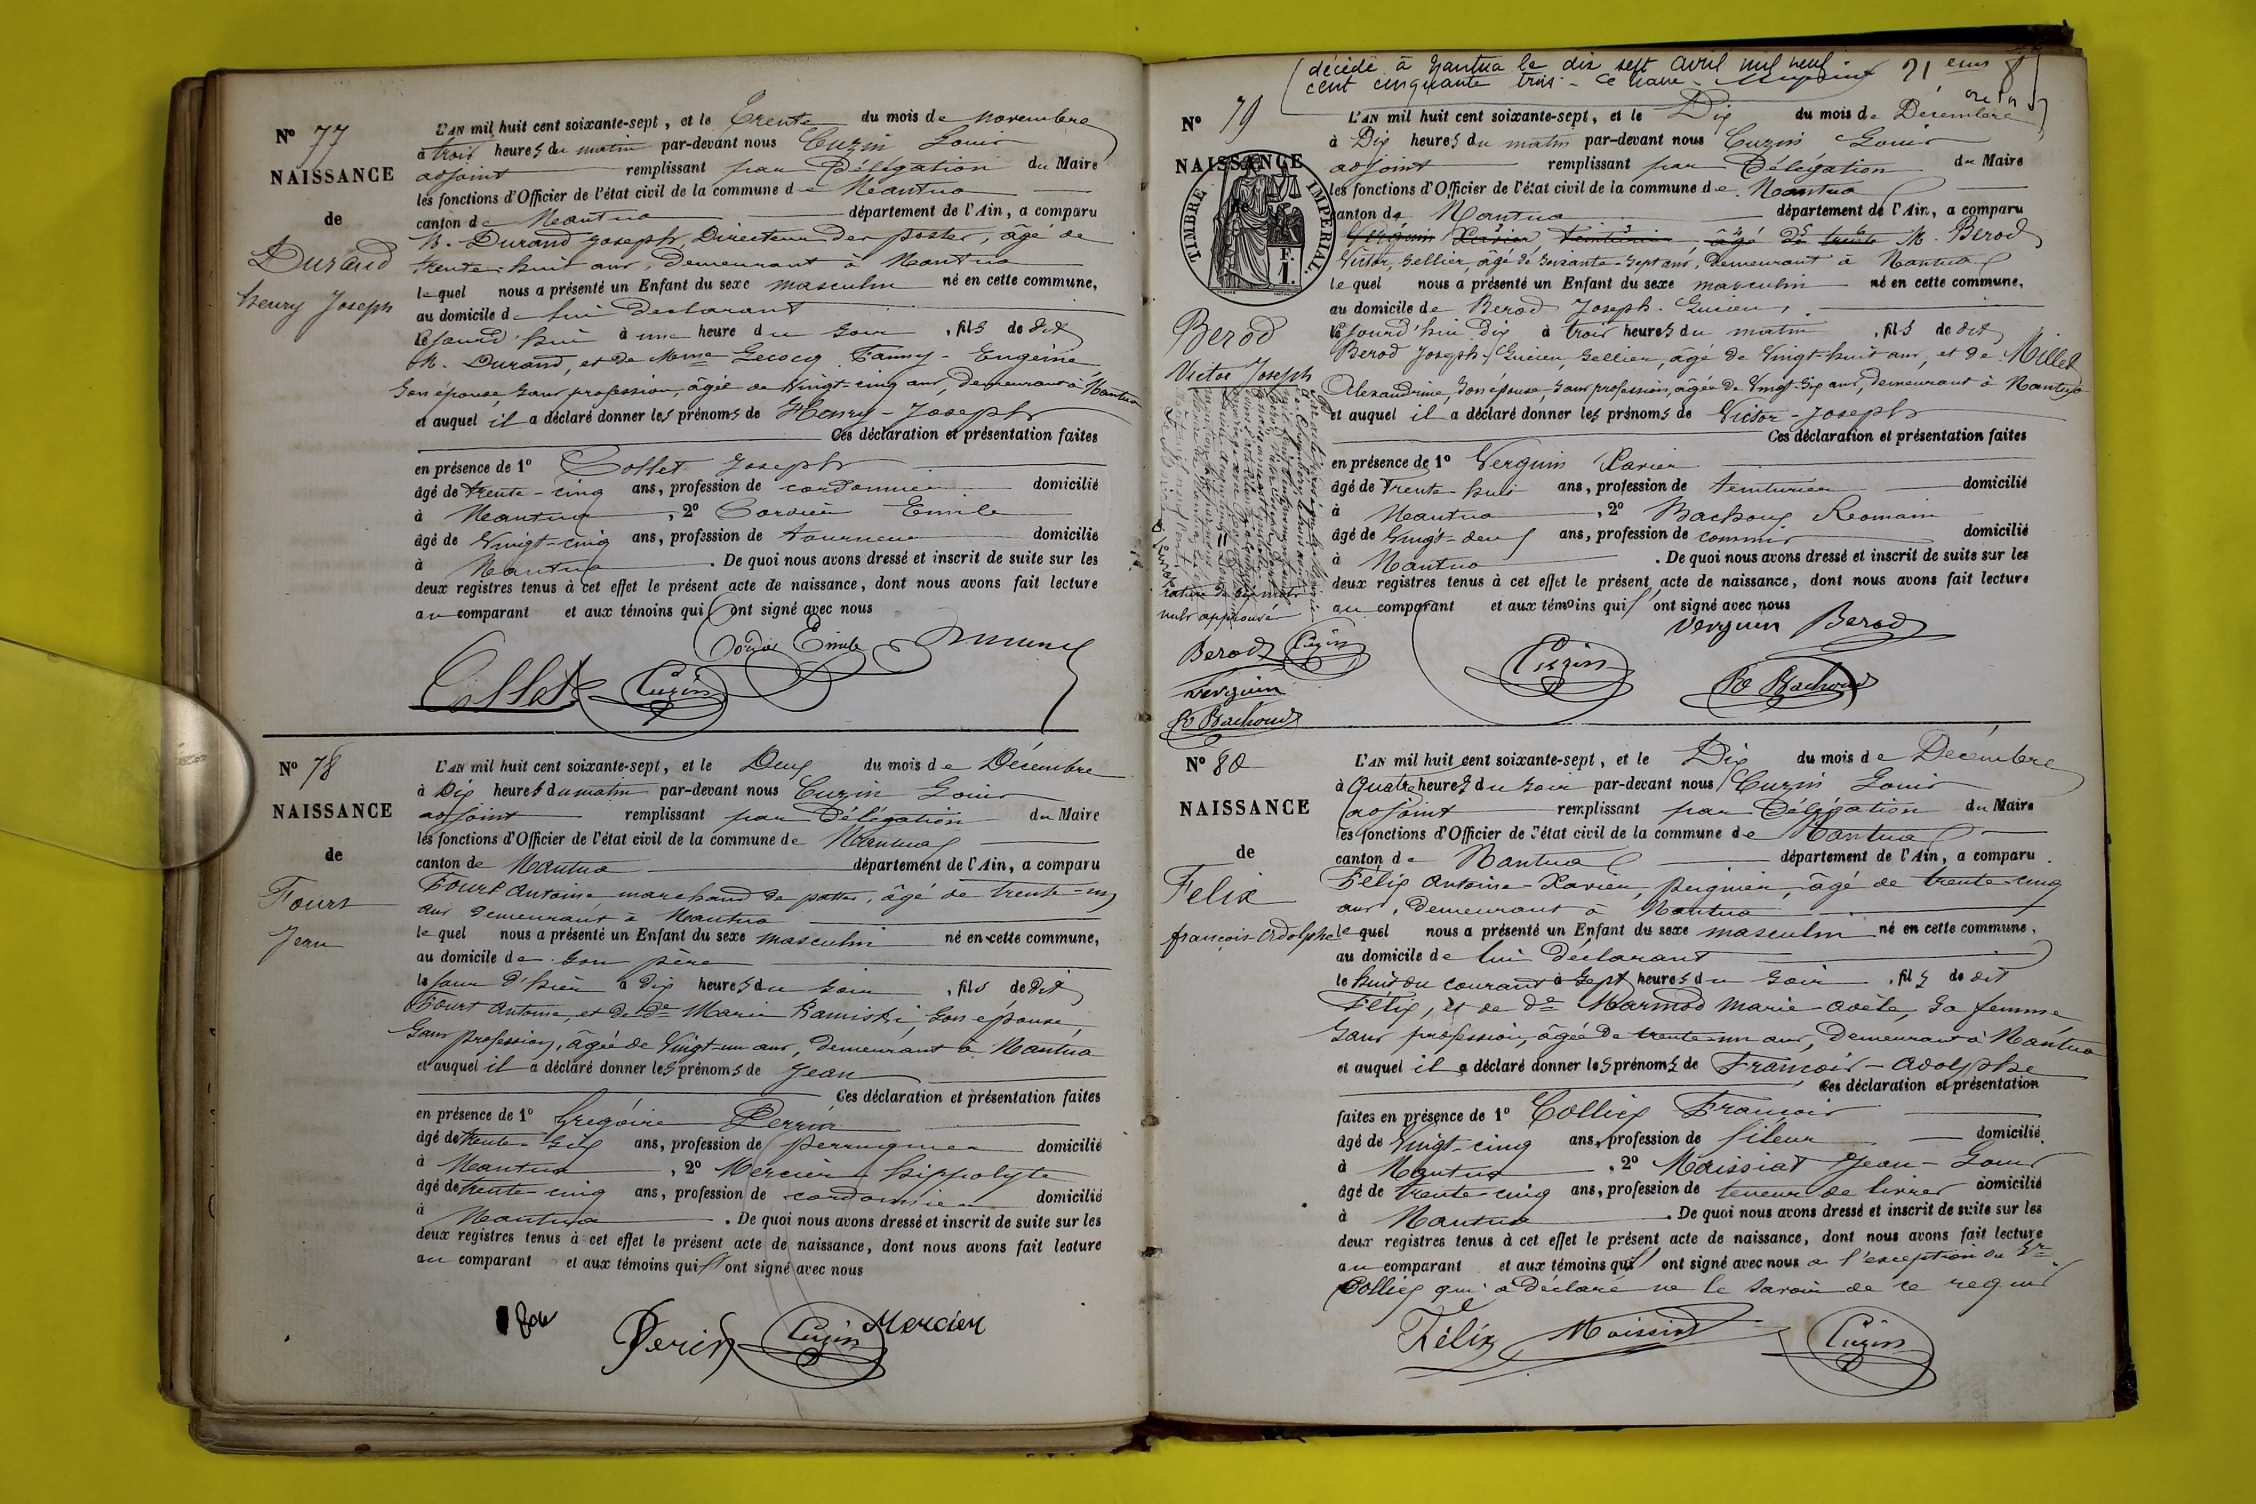 N° 77
NAISSANCE
de
Durand
henry Joseph
L'AN mil huit cent soixante-sept, et le Trente du mois de novembre
à trois heures du matin par-devant nous Cuzin Louis
adjoint remplissant par Délégation du Maire
les fonctions d'Officier de l'état civil de la commune de Nantua
canton de Nantua département de l'Ain, a comparu
M. Durand Joseph, Directeur des postes, âgé de
trente-huit ans, demeurant à Nantua
lequel nous a présenté un Enfant du sexe masculin né en cette commune,
au domicile de lui déclarant
le jourd'hui à une heure du , fils de dit
M. Durand, et de Mme Lecocq Fanny - Eugénie
son épouse sans profession, âgée de Vingt-cinq ans, demeurant à Nantua
et auquel il a déclaré donner les prénoms de Henry - Joseph
Ces déclaration et présentation faites
en présence de 1° Collet Joseph
âgé de trente-cinq ans, profession de cordonnier domicilié
à Nantua, 2° Cordier Emile
âgé de Vingt-cinq ans, profession de tourneur domicilié
à Nantua. De quoi nous avons dressé et inscrit de suite sur les
deux registres tenus à cet effet le présent acte de naissance, dont nous avons fait lecture
au comparant et aux témoins qui ont signé avec nous
Cordier Emile
Collet Cuzin
N° 78
NAISSANCE
de
Fourt
Jean
L'AN mil huit cent soixante-sept, et le Deux du mois de Décembre
à Dix heures du matin par-devant nous Cuzin Louis
adjoint remplissant par Délégation du Maire
les fonctions d'Officier de l'état civil de la commune de Nantua
canton de Nantua département de l'Ain, a comparu
Fourt Antoine, marchand de pattes, âgé de trente-un
ans demeurant à Nantua
lequel nous a présenté un Enfant du sexe masculin né en cette commune,
au domicile de son père
le jour d'hier à dix heures du soir, fils de dit
Fourt Antoine, et de De Marie son épouse,
sans profession, âgée de Vingt-un ans, demeurant à Nantua
et auquel il a déclaré donner les prénoms de Jean
Ces déclaration et présentation faites
en présence de 1° Grégoire Perrin
âgé de trente-six ans, profession de perruquier domicilié
à Nantua, 2° Mercier hippolyte
âgé de trente-cinq ans, profession de cordonnier domicilié
à Nantua. De quoi nous avons dressé et inscrit de suite sur les
deux registres tenus à cet effet le présent acte de naissance, dont nous avons fait lecture
au comparant et aux témoins qui ont signé avec nous
Perrin Cuzin Mercier
décédé à Nantua le dix sept avril mil neuf
cent cinquante trois - Le Maire
N° 79
NAISSANCE
TIMBRE IMPÉRIAL
Berod
Victor Joseph
nuls approuvé
Berod Cuzin
Verguin
Bachoud
L'AN mil huit cent soixante-sept, et le Dix du mois de Décembre
à Dix heures du matin par-devant nous Cuzin Louis
adjoint remplissant par Délégation du Maire
les fonctions d'Officier de l'état civil de la commune de Nantua
canton de Nantua département de l'Ain, a comparu
Verguin Xavier, teinturier, âgé de trente M. Berod
Victor, sellier, âgé de soixante-sept ans, demeurant à Nantua
lequel nous a présenté un Enfant du sexe masculin né en cette commune,
au domicile de Berod Joseph-Lucien,
le jourd'hui Dix à trois heures du matin, fils de dit
Berod Joseph-Lucien, sellier, âgé de Vingt-huit ans, et de Millet
Alexandrine, son épouse, sans profession, âgée de Vingt-six ans, demeurant à Nantua
et auquel il a déclaré donner les prénoms de Victor-Joseph
Ces déclaration et présentation faites
en présence de 1° Verguin Xavier
âgé de trente-huit ans, profession de teinturier domicilié
à Nantua, 2° Bachoux Romain
âgé de Vingt-deux ans, profession de commis domicilié
à Nantua. De quoi nous avons dressé et inscrit de suite sur les
deux registres tenus à cet effet le présent acte de naissance, dont nous avons fait lecture
au comparant et aux témoins qui ont signé avec nous
Verguin Berod
Cuzin Bachoud
N° 80
NAISSANCE
de
Felix
françois-Adolphe
L'AN mil huit cent soixante-sept, et le Dix du mois de Décembre
à quatre heures du soir par-devant nous Cuzin Louis
adjoint remplissant par Délégation du Maire
les fonctions d'Officier de l'état civil de la commune de Nantua
canton de Nantua département de l'Ain, a comparu
Félix Antoine-Xavier, peignier, âgé de trente-cinq
ans, demeurant à Nantua
lequel nous a présenté un Enfant du sexe masculin né en cette commune,
au domicile de lui déclarant
le huit du courant à sept heures du soir, fils de dit
Félix, et de De Marmod Marie-Adèle, sa femme
sans profession, âgée de trente-un ans, demeurant à Nantua
et auquel il a déclaré donner les prénoms de François-Adolphe
Ces déclaration et présentation
faites en présence de 1° Colliex François
âgé de Vingt-cinq ans, profession de fileur domicilié
à Nantua, 2° Moissiat Jean-Louis
âgé de trente-cinq ans, profession de teneur de livres domicilié
à Nantua. De quoi nous avons dressé et inscrit de suite sur les
deux registres tenus à cet effet le présent acte de naissance, dont nous avons fait lecture
au comparant et aux témoins qui ont signé avec nous a l'exception du Sr
Colliex qui a déclaré ne le savoir de ce requis
Félix Moissiat Cuzin